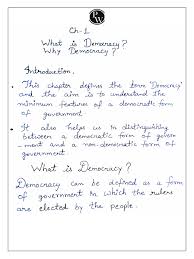 PW
Ch-1
What is Democracy?
Why Democracy?
Introduction.
• This chapter defines the term 'Democracy'
and the aim is to understand the
minimum features of a democratic form
of government.
• It also helps us in distinguishing
between a democratic form of gover
-ment and a non-democratic form of
government.
What is Democracy?
Democracy can be defined as a form
of government in which the rulers
are elected by the people.